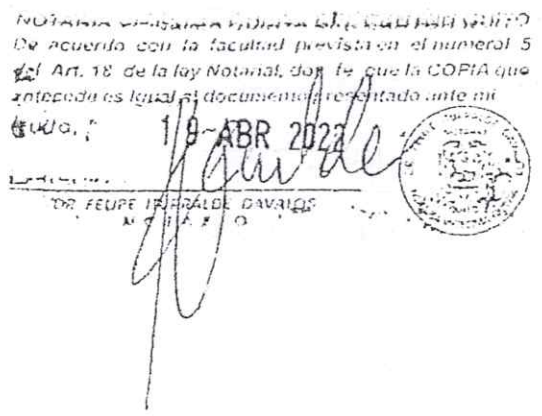 NOTARIA VIGESIMA QUINTA DEL CANTON QUITO
De acuerdo con la facultad prevista en el numeral 5
del Art. 18 de la ley Notarial, doy fe que la COPIA que
antecede es igual al documento presentado ante mi
Quito,
19 ABR 2022
DR. FELIPE ITURRALDE DAVALOS
NOTARIO